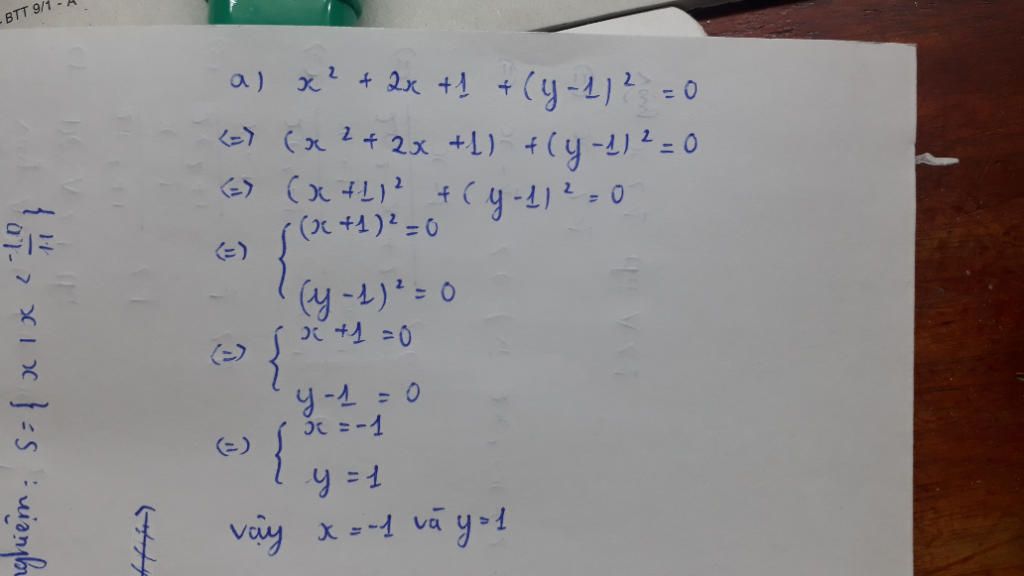 BTT 9/1 - A
a) x² + 2x + 1 + (y - 1)² = 0
<=> (x² + 2x + 1) + (y - 1)² = 0
<=> (x + 1)² + (y - 1)² = 0
<=> { (x + 1)² = 0
(y - 1)² = 0
<=> { x + 1 = 0
y - 1 = 0
<=> { x = -1
y = 1
vậy x = -1 và y = 1
nghiệm: S = { x | x < -10/11 }